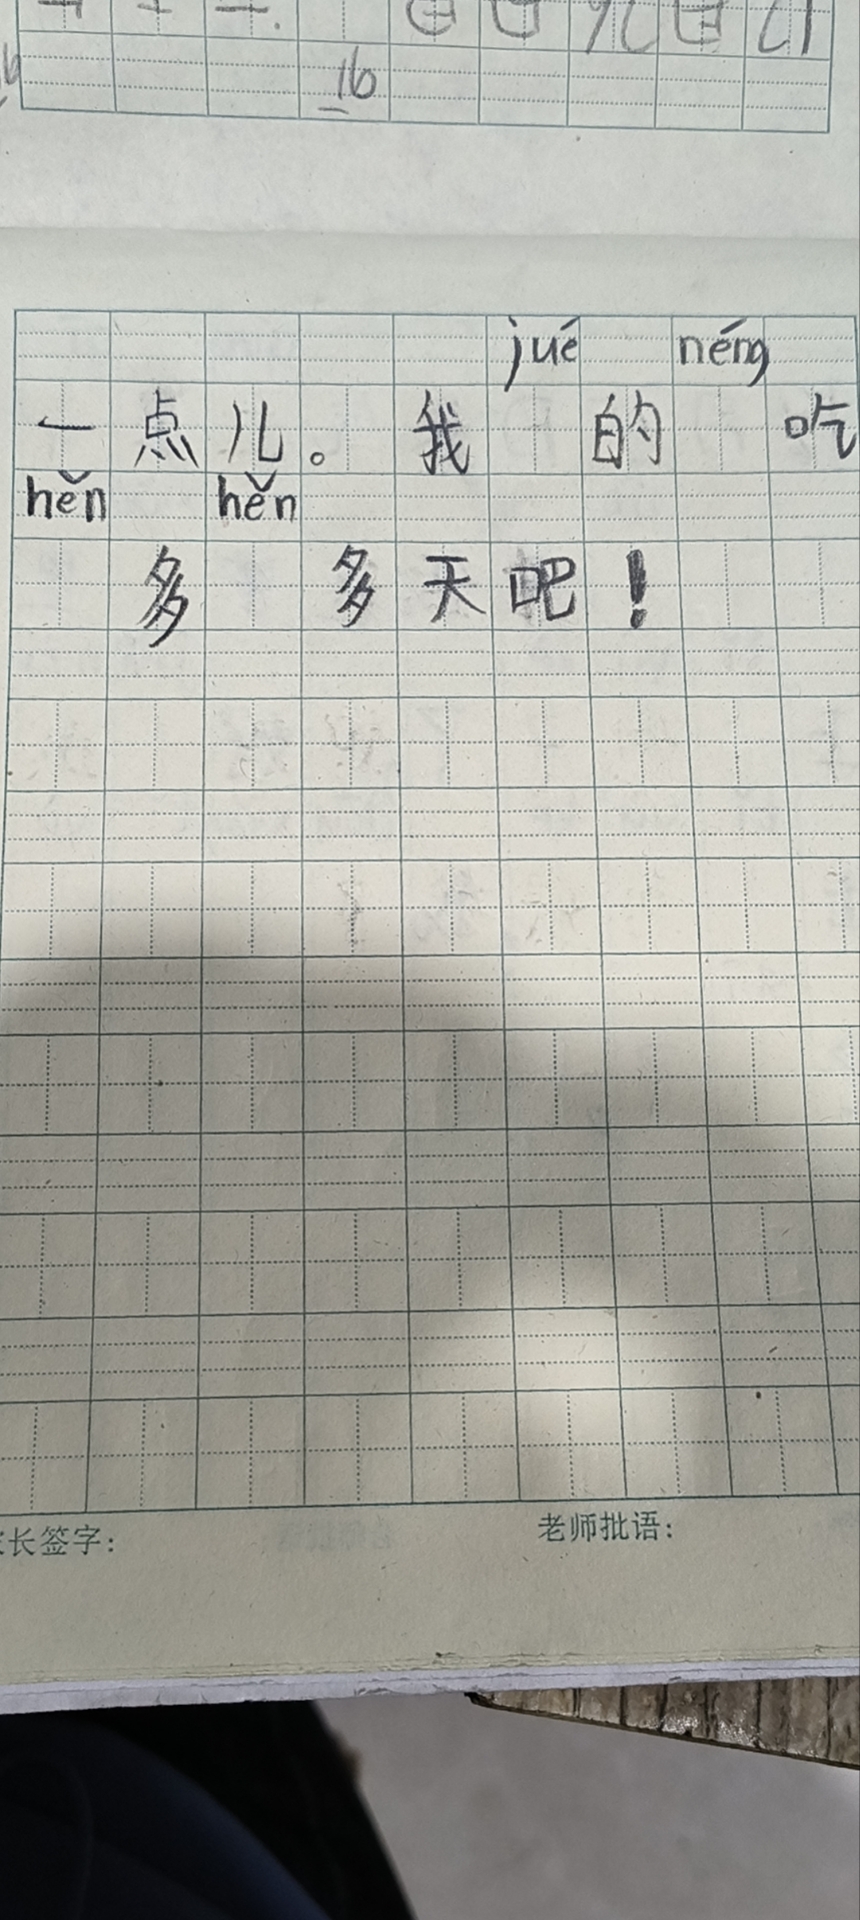 16
jué néng
一点儿。我 的 吃
hěn hěn
多 多天吧！
长签字： 老师批语：